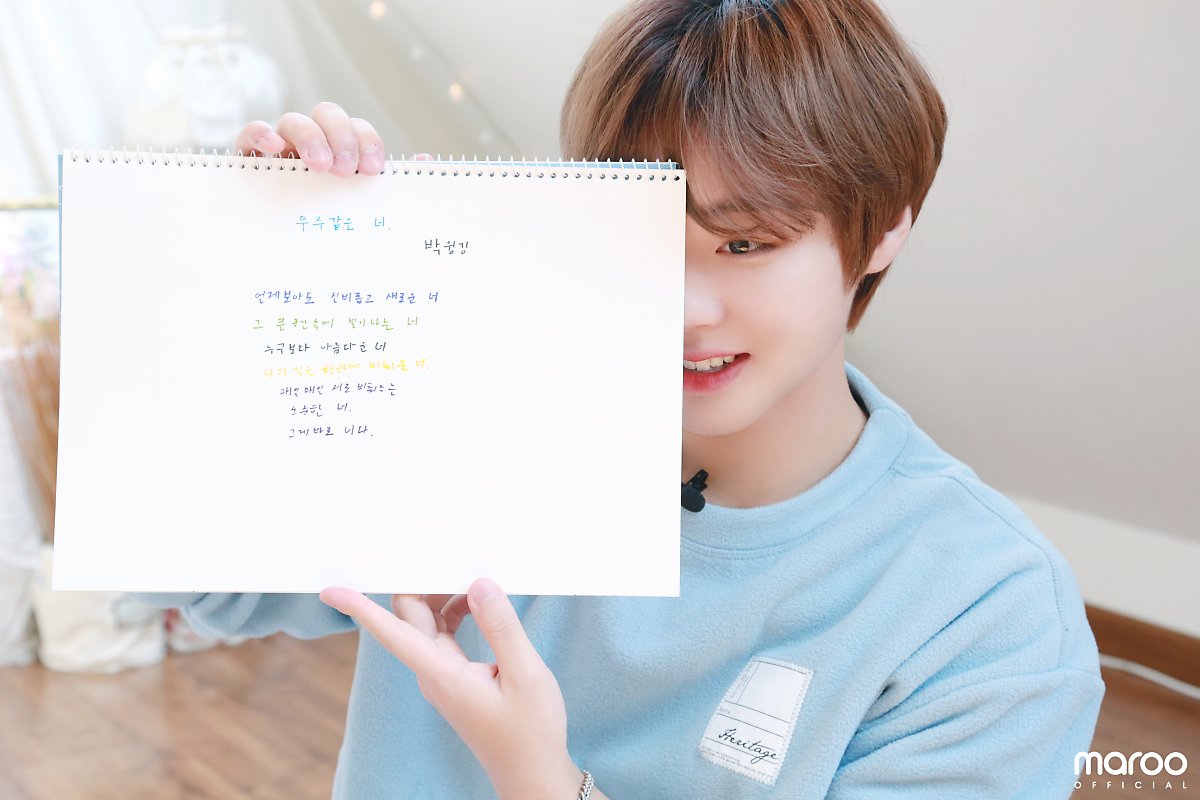 우주같은 너.
박윙깅
언제보아도 신비롭고 새로운 너
그 큰 공간속에 빛이나는 너
누구보다 아름다운 너
나의 깊은 한켠에 비춰운 너.
매일매일 서로 비춰주는
소중한 너.
그게바로 너다.
Heritage
maroo
OFFICIAL